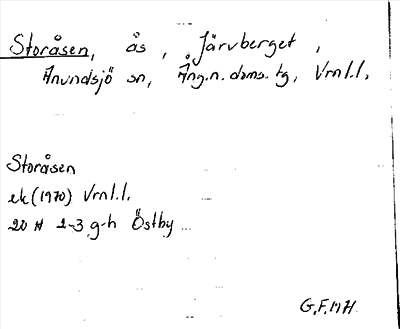 Storåsen, ås, Järvberget,
Anundsjö sn, Ång.n. doms. tg, Vrnl.l.
Storåsen
ek (1970) Vrnl.l.
20 H 2-3 g-h Östby
G.F.MH.